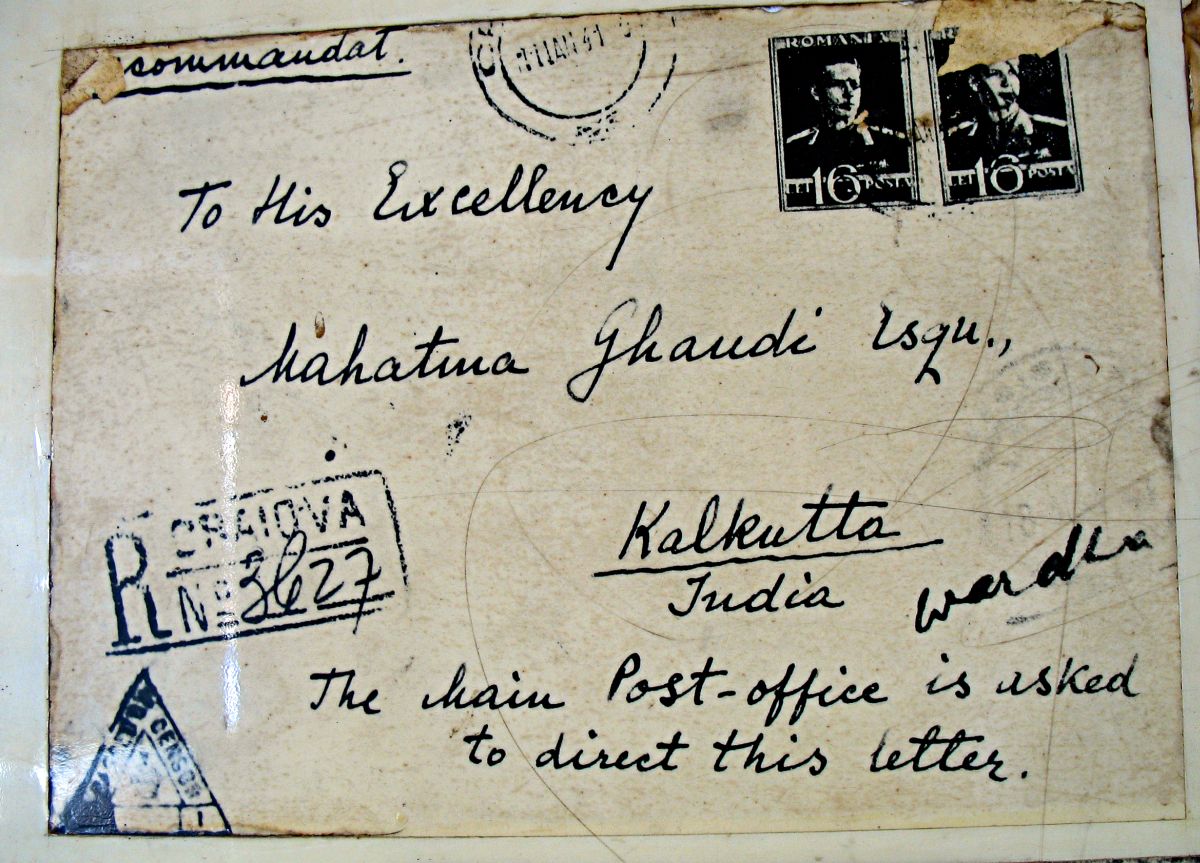 commandat.
11 IAN 41
ROMANIA
LEI 16 POSTA
LEI 16 POSTA
To His Excellency
Mahatma Ghandi Esqu.,
R CRAIOVA
No 3627
Kalkutta
India
wardha
The Main Post-office is asked
to direct this letter.
CENSOR
1